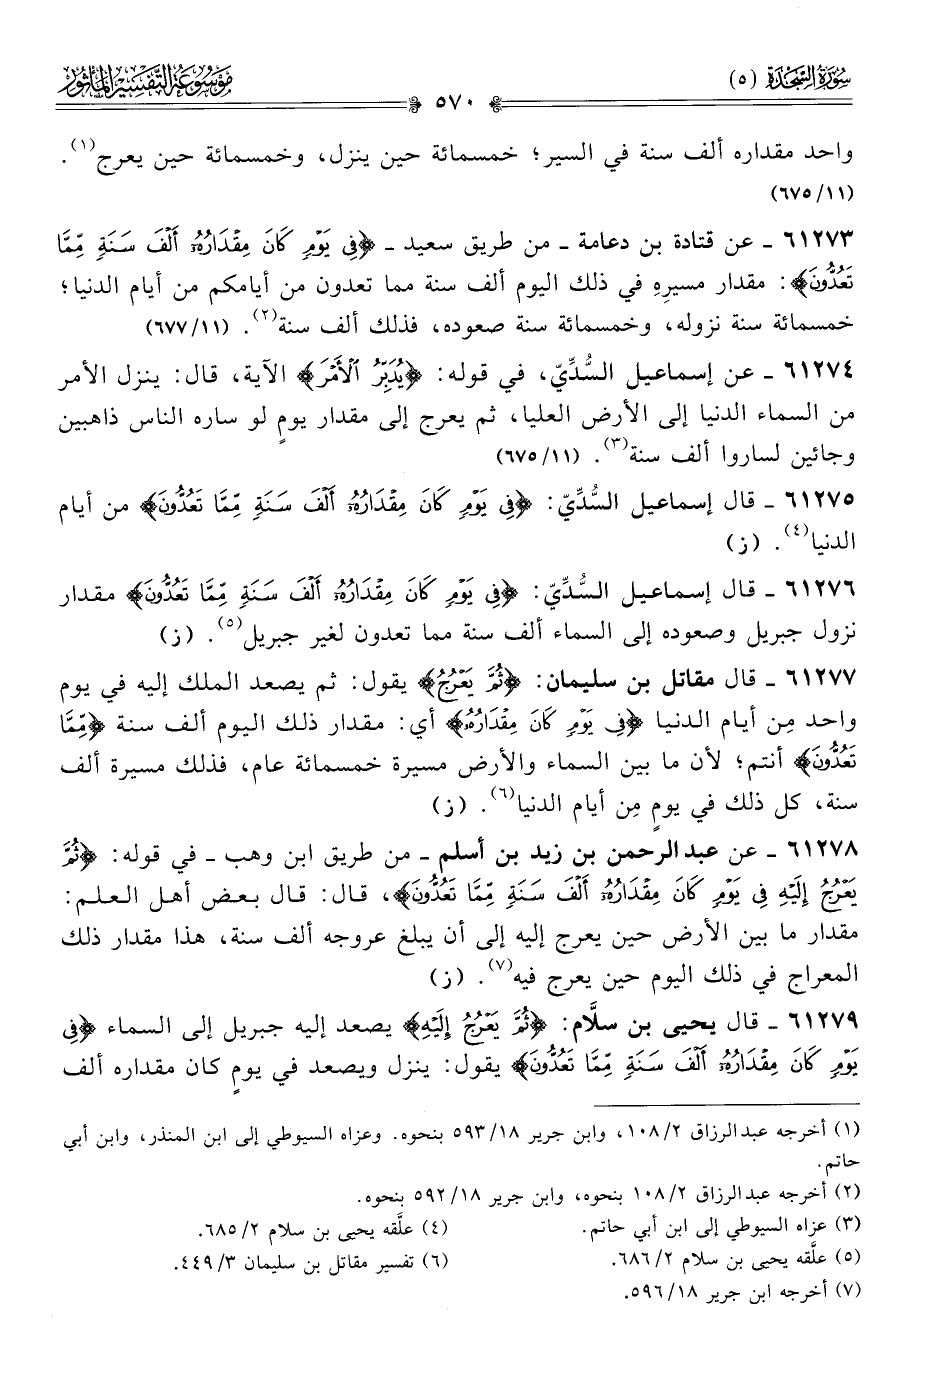 سُورَةُ السَّجْدَةِ (٥)
مَوْسُوعَةُ التَّفْسِيرِ المَأْثُور
٥٧٠
واحد مقداره ألف سنة في السير؛ خمسمائة حين ينزل، وخمسمائة حين يعرج(١).
(٦٧٥/١١)
٦١٢٧٣ ـ عن قتادة بن دعامة ـ من طريق سعيد ـ ﴿فِي يَوْمٍ كَانَ مِقْدَارُهُۥٓ أَلْفَ سَنَةٍ مِّمَّا
تَعُدُّونَ﴾: مقدار مسيرِهِ في ذلك اليوم ألف سنة مما تعدون من أيامكم من أيام الدنيا؛
خمسمائة سنة نزوله، وخمسمائة سنة صعوده، فذلك ألف سنة(٢). (٦٧٧/١١)
٦١٢٧٤ ـ عن إسماعيل السُّدِّيّ، في قوله: ﴿يُدَبِّرُ ٱلْأَمْرَ﴾ الآية، قال: ينزل الأمر
من السماء الدنيا إلى الأرض العليا، ثم يعرج إلى مقدار يومٍ لو ساره الناس ذاهبين
وجائين لساروا ألف سنة(٣). (٦٧٥/١١)
٦١٢٧٥ ـ قال إسماعيل السُّدِّيّ: ﴿فِي يَوْمٍ كَانَ مِقْدَارُهُۥٓ أَلْفَ سَنَةٍ مِّمَّا تَعُدُّونَ﴾ من أيام
الدنيا(٤). (ز)
٦١٢٧٦ ـ قال إسماعيل السُّدِّيّ: ﴿فِي يَوْمٍ كَانَ مِقْدَارُهُۥٓ أَلْفَ سَنَةٍ مِّمَّا تَعُدُّونَ﴾ مقدار
نزول جبريل وصعوده إلى السماء ألف سنة مما تعدون لغير جبريل(٥). (ز)
٦١٢٧٧ ـ قال مقاتل بن سليمان: ﴿ثُمَّ يَعْرُجُ﴾ يقول: ثم يصعد الملك إليه في يوم
واحد مِن أيام الدنيا ﴿فِي يَوْمٍ كَانَ مِقْدَارُهُۥٓ﴾ أي: مقدار ذلك اليوم ألف سنة ﴿مِّمَّا
تَعُدُّونَ﴾ أنتم؛ لأن ما بين السماء والأرض مسيرة خمسمائة عام، فذلك مسيرة ألف
سنة، كل ذلك في يومٍ مِن أيام الدنيا(٦). (ز)
٦١٢٧٨ ـ عن عبد الرحمن بن زيد بن أسلم ـ من طريق ابن وهب ـ في قوله: ﴿ثُمَّ
يَعْرُجُ إِلَيْهِ فِي يَوْمٍ كَانَ مِقْدَارُهُۥٓ أَلْفَ سَنَةٍ مِّمَّا تَعُدُّونَ﴾، قال: قال بعض أهل العلم:
مقدار ما بين الأرض حين يعرج إليه إلى أن يبلغ عروجه ألف سنة، هذا مقدار ذلك
المعراج في ذلك اليوم حين يعرج فيه(٧). (ز)
٦١٢٧٩ ـ قال يحيى بن سلَّام: ﴿ثُمَّ يَعْرُجُ إِلَيْهِ﴾ يصعد إليه جبريل إلى السماء ﴿فِي
يَوْمٍ كَانَ مِقْدَارُهُۥٓ أَلْفَ سَنَةٍ مِّمَّا تَعُدُّونَ﴾ يقول: ينزل ويصعد في يومٍ كان مقداره ألف
(١) أخرجه عبد الرزاق ١٠٨/٢، وابن جرير ٥٩٣/١٨ بنحوه. وعزاه السيوطي إلى ابن المنذر، وابن أبي
حاتم.
(٢) أخرجه عبد الرزاق ١٠٨/٢ بنحوه، وابن جرير ٥٩٢/١٨ بنحوه.
(٣) عزاه السيوطي إلى ابن أبي حاتم.
(٤) علَّقه يحيى بن سلام ٦٨٥/٢.
(٥) علَّقه يحيى بن سلام ٦٨٦/٢.
(٦) تفسير مقاتل بن سليمان ٤٤٩/٣.
(٧) أخرجه ابن جرير ٥٩٦/١٨.